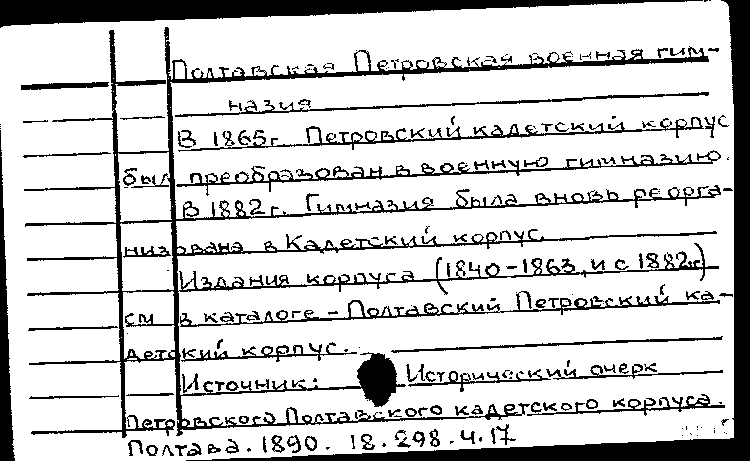 Полтавская Петровская военная гим-
назия
В 1865г. Петровский кадетский корпус
был преобразован в военную гимназию.
В 1882г. Гимназия была вновь реорга-
низована в Кадетский корпус.
Издания корпуса (1840-1863, и с 1882г.)
см в каталоге - Полтавский Петровский ка-
детский корпус.
Источник: Исторический очерк
Петровского Полтавского кадетского корпуса.
Полтава. 1890. 18.298.4.17